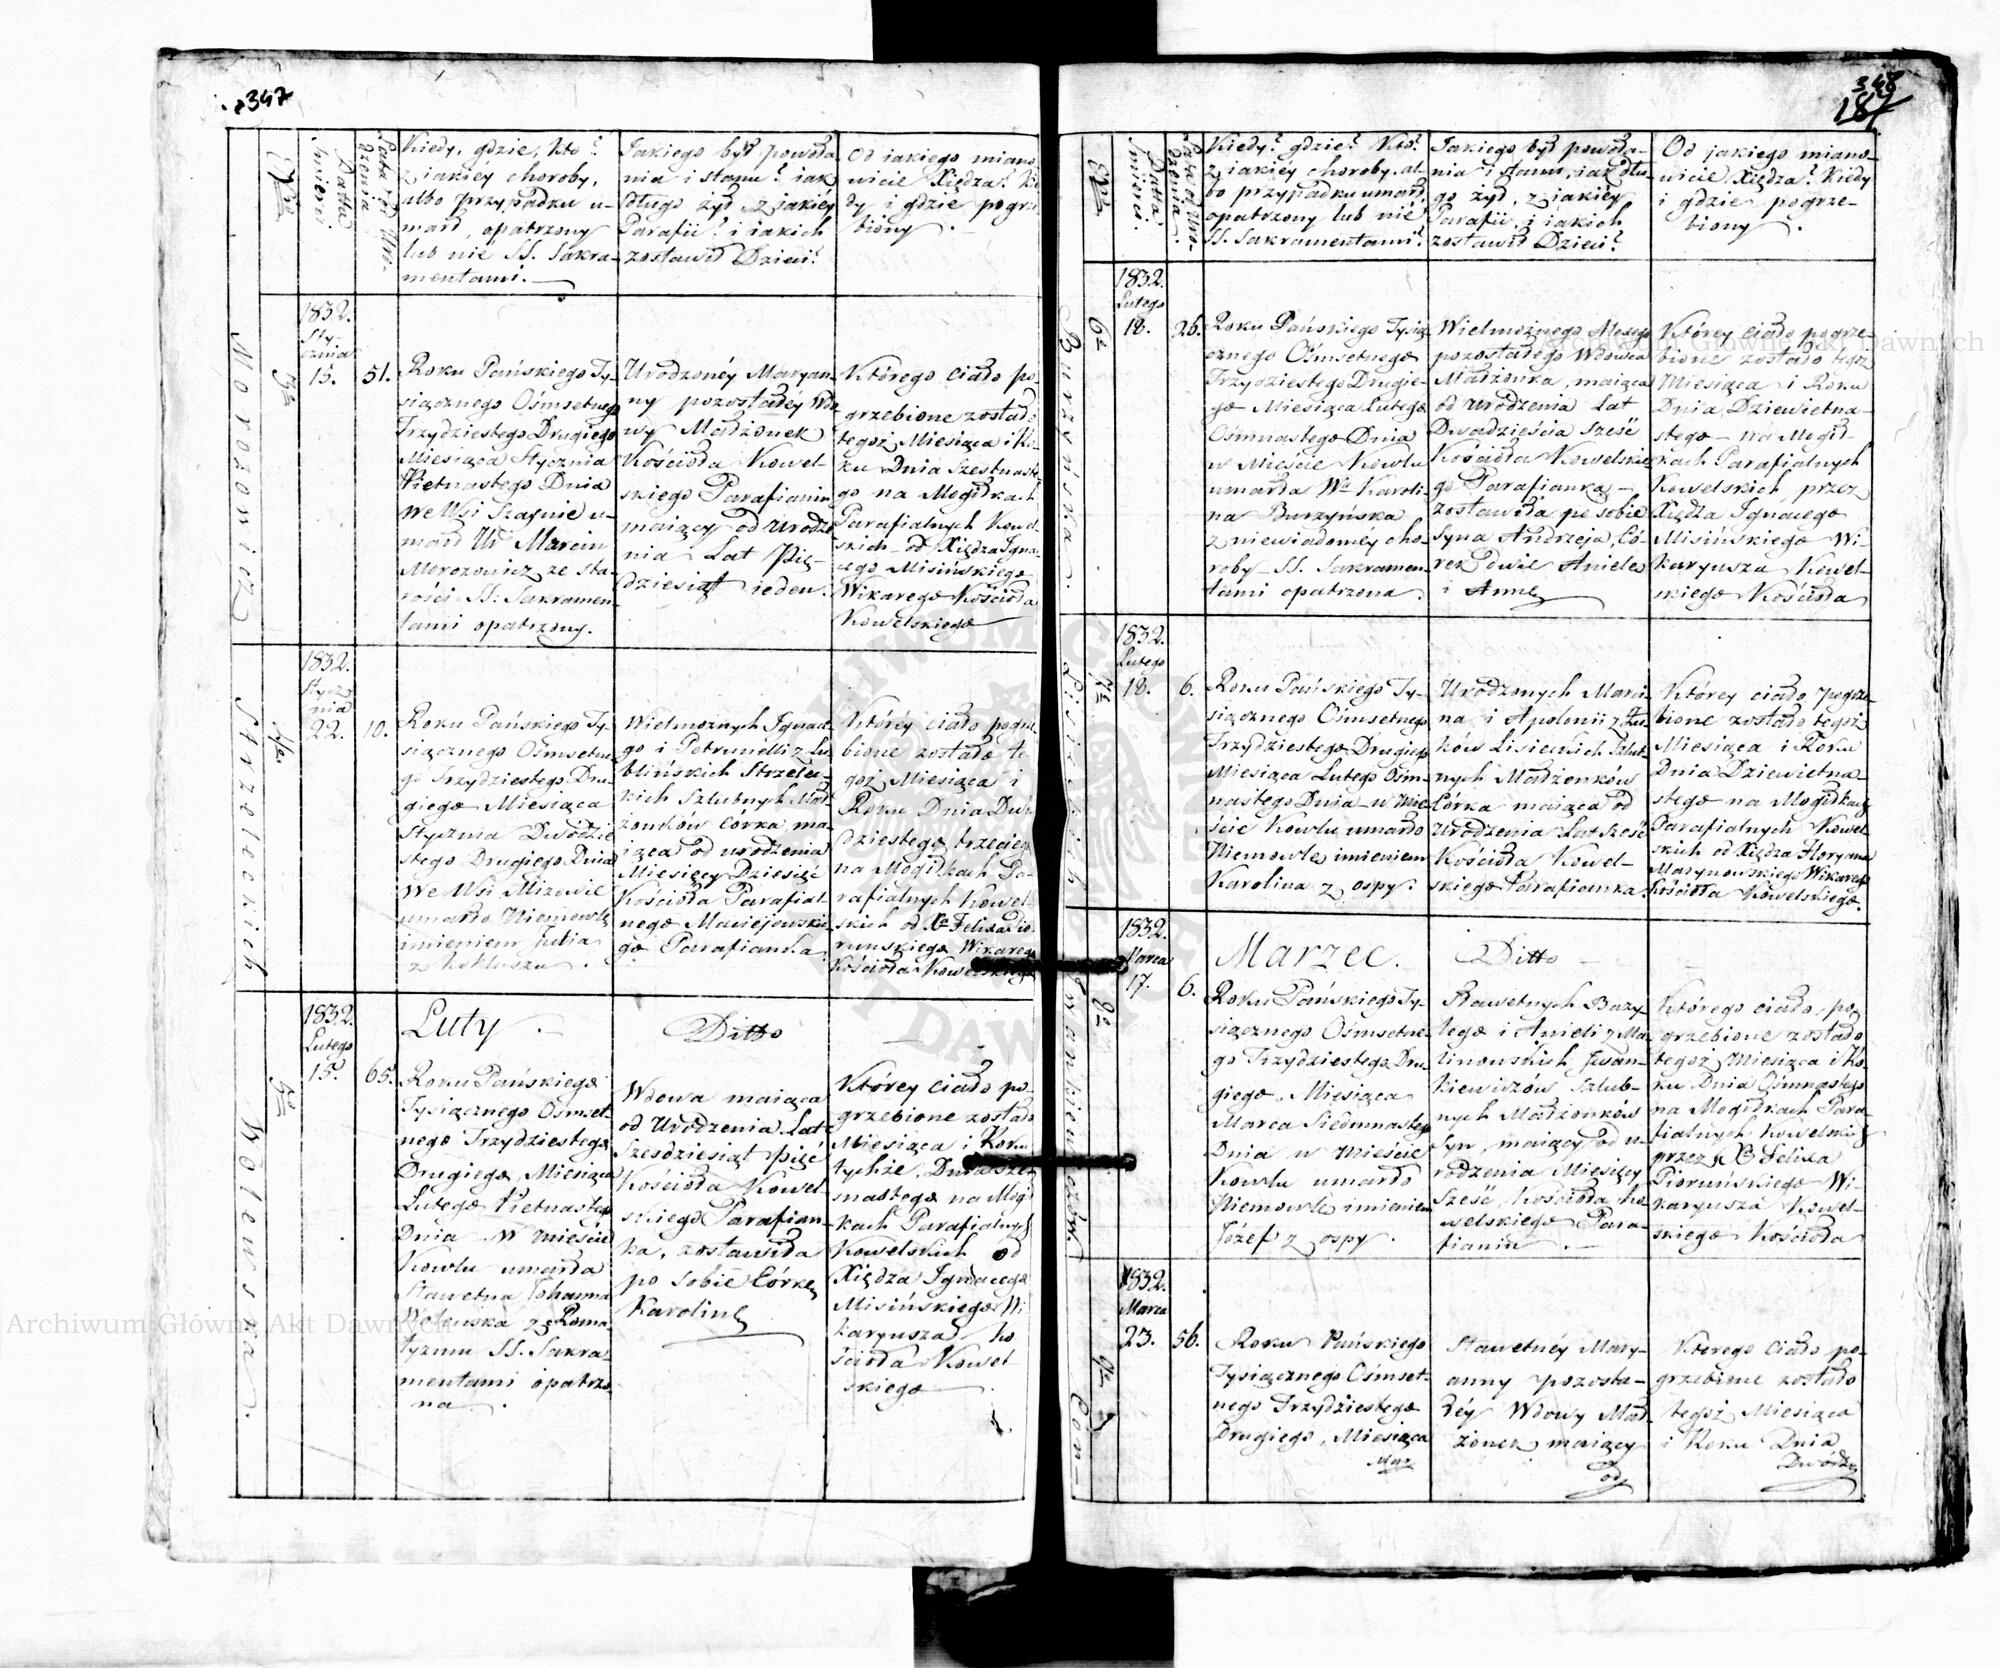 347
Nro
Datta Śmierci
Lata od Urodzenia
Kiedy, gdzie, kto?
z iakiéy choroby,
albo przypadku u-
marł, opatrzony
lub nie SS. Sakra-
mentami.
Jakiego był powoła-
nia i stanu? iak
długo żył z iakiéy
Parafii? i iakich
zostawił Dzieci?
Od iakiego miano-
wicie Xiędza? Kie-
dy i gdzie pogrze-
biony.
Morozowicz
3tie
1832.
Sty-
cznia
15.
51.
Roku Pańskiego Ty-
siącznego Ośmsetnego
Trzydziestego Drugiego
Miesiąca Stycznia
Pietnastego Dnia
We Wsi Szaynie u-
marł Ur Marcin
Morozowicz ze sta-
rości SS. Sakramen-
tami opatrzony.
Urodzonéy Maryan-
ny pozostałéy Wdo
wy Małżonek
Kościoła Kowel-
skiego Parafianin
maiący od Urodze
nia Lat Pięć-
dziesiąt ieden.
Którego ciało po-
grzebione zostało
tegoż Miesiąca i Ro-
ku Dnia Szesnaste-
go na Mogiłkach
Parafialnych Kowel-
skich od Xiędza Igna-
cego Misińskiego
Wikarego Kościoła
Kowelskiego
Strzeleckich
4te
1832.
Stycz
nia
22.
10.
Roku Pańskiego Ty-
siącznego Ośmsetne
go Trzydziestego Dru-
giego Miesiąca
Stycznia Dwódzie
stego Drugiego Dnia
We Wsi Mizowie
umarło Niemowle
imieniem Julia
z Kokluszu.
Wielmożnych Ignace-
go i Petrunelli z Lu
blińskich Strzelec-
kich Szlubnych Mał
żonków Córka ma-
iąca od urodzenia
Miesięcy Dziesięć
Kościoła Parafial-
nego Maciejowskie-
go Parafianka.
Któréy ciało pogrze
bione zostało te-
goż Miesiąca i
Roku Dnia Dwu-
dziestego trzeciego
na Mogiłkach Pa-
rafialnych Kowel-
skich od Xa Felixa Pio
runskiego Wikarego
Kościoła Kowelskiego
Wolewska.
5te
1832.
Lutego
15.
65.
Luty.
Ditto
Roku Pańskiego
Tysiącznego Ośmset-
nego Trzydziestego
Drugiego, Miesiąca
Lutego Pietnastego
Dnia W Mieście
Kowlu umarła
Sławetna Johanna
Wolewska z Roma-
tyzmu SS. Sakra-
mentami opatrzo
na.
Wdowa maiąca
od Urodzenia Lat
Szesdziesiąt pięć
Kościoła Kowel-
skiego Parafian-
ka, zostawiła
po sobie Córkę
Karolinę
Którey ciało po-
grzebione zostało
Miesiąca i Roku
tychże, Dnia Sze-
snastego na Mogił
kach Parafialnych
Kowelskich od
Xiędza Ignacego
Misińskiego Wi
karyusza Ko
ścioła Kowel-
skiego
348
187
Nro
Datta Śmierci.
Lata od Uro-
dzenia.
Kiedy? gdzie? Kto?
z iakiéy choroby, al-
bo przypadku umarł,
opatrzony lub nié
SS. Sakramentami?
Jakiego był powoła-
nia i stanu, iak dłu-
go żył, z iakiéy
Parafii, i iakich
zostawił Dzieci?
Od jakiego miano-
wicie Xiędza? Kiedy
i gdzie pogrze-
biony.
Burzyńska.
6te
1832.
Lutego
18.
26.
Roku Pańskiego Tysią
cznego Ośmsetnego
Trzydziestego Drugie-
go Miesiąca Lutego
Ośmnastego Dnia
w Mieście Kowlu
umarła Wa Karoli-
na Burzyńska
z niewiadomey cho-
roby SS. Sakramen-
tami opatrzona.
Wielmożnego
pozostałego Wdowca
Małżonka, maiąca
od urodzenia Lat
Dwadzieścia Sześć
Kościoła Kowelskie
go Parafianka,
zostawiła po sobie
Syna Andrzeja, Có-
rek dwie Anielę
i Annę
Którey ciało pogrze
bione zostało tegoż
Miesiąca i Roku
Dnia Dziewietna-
stego na Mogił-
kach Parafialnych
Kowelskich, przez
Xiędza Ignacego
Misińskiego Wi-
karyusza Kowel-
skiego Kościoła
Lisieckich
7te
1832.
Lutego
18.
6.
Roku Pańskiego Ty-
siącznego Ośmsetnego
Trzydziestego Drugiego
Miesiąca Lutego Ośm-
nastego Dnia w Mie-
ście Kowlu umarło
Niemowle imieniem
Karolina z ospy.
Urodzonych Marci-
na i Apolonii z Żu-
ków Lisieckich Szlub-
nych Małżonków
Córka maiąca od
Urodzenia Lat Sześć
Kościoła Kowel-
skiego Parafianka.
Którey ciało pogrze
bione zostało tegoż
Miesiąca i Roku
Dnia Dziewietna-
stego na Mogiłkach
Parafialnych Kowel-
skich od Xiędza Floryana
Marynowskiego Wikarego
Kościoła Kowelskiego.
Iwankiewiczów
8e
1832.
Marca
17.
6.
Marzec.
Ditto
Roku Pańskiego Ty-
siącznego Ośmsetne-
go Trzydziestego Dru-
giego, Miesiąca
Marca Siedmnastego
Dnia w Mieście
Kowlu umarło
Niemowle imieniem
Józef z ospy.
Sławetnych Bazy-
lego i Anieli z Ma-
linowskich Jwan-
kiewiczów Szlub-
nych Małżonków
Syn, maiący od u-
rodzenia Miesięcy
Sześć, Kościoła Ko-
welskiego Para-
fianin.
Którego ciało po-
grzebione zostało
tegoż Miesiąca i Ro-
ku Dnia Ośmnastego
na Mogiłkach Para-
fialnych Kowelskich
przez X Felixa
Pioruńskiego Wi-
karyusza Kowel-
skiego Kościoła
Com-
9te
1832.
Marca
23.
56.
Roku Pańskiego
Tysiącznego Ośmset-
nego Trzydziestego
Drugiego, Miesiąca
Mar
Sławetnéy Mary-
anny pozosta-
łéy Wdowy Mał-
żonek maiący
od
Ktorego Ciało po-
grzebione zostało
tegoż Miesiąca
i Roku Dnia
Dwódz
Archiwum Główne Akt Dawnych
Archiwum Główne Akt Dawnych
ARCHIWUM GŁÓWNE AKT DAWNYCH